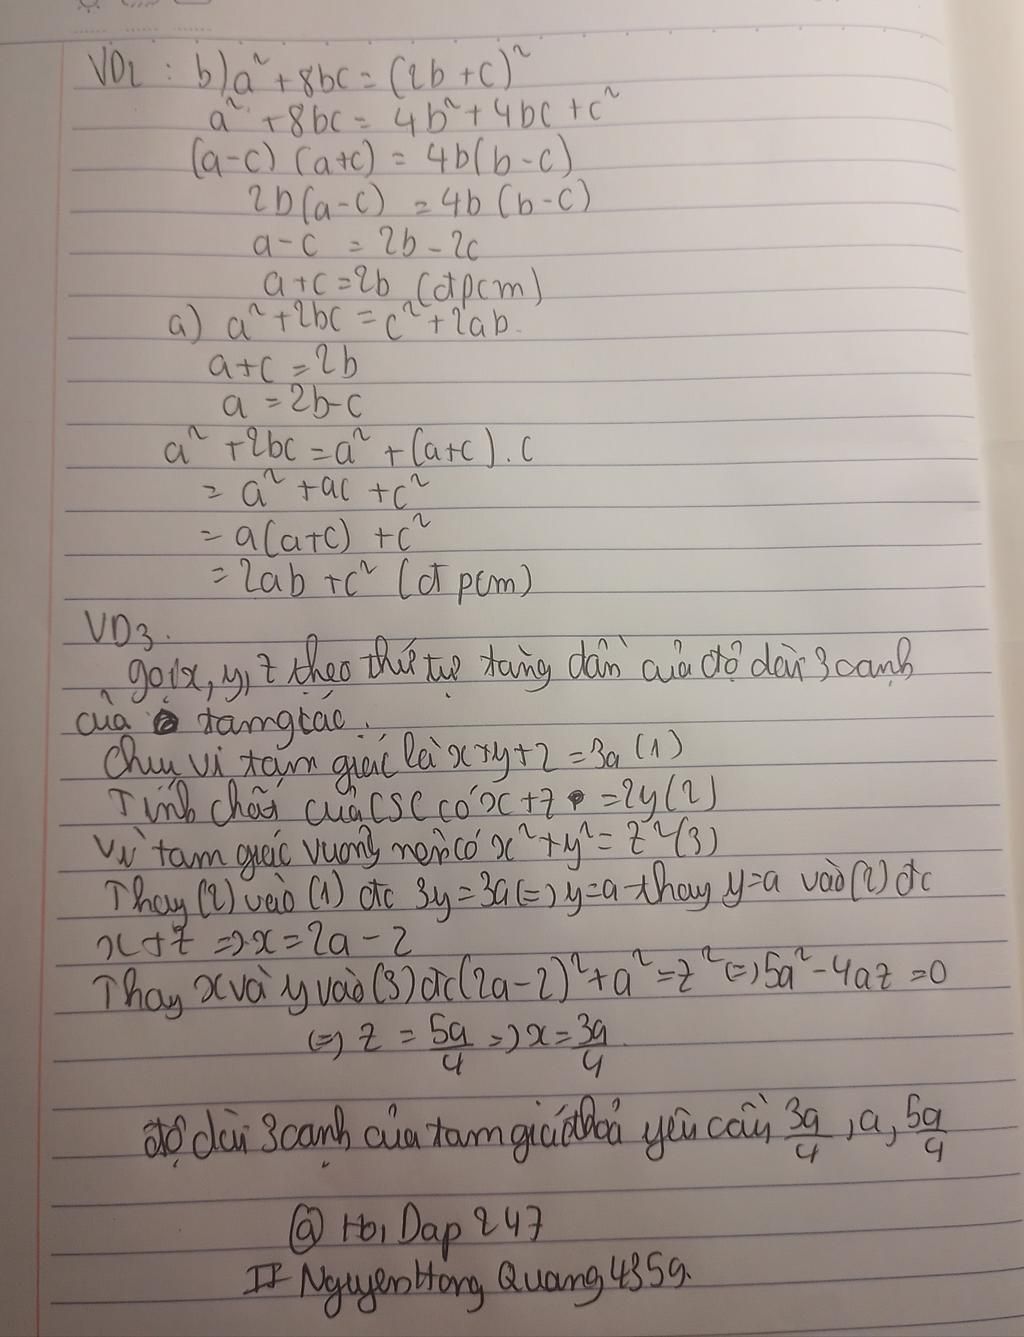 VD2 : b) a² + 8bc = (2b + c)²
a² + 8bc = 4b² + 4bc + c²
(a-c) (a+c) = 4b(b-c)
2b(a-c) = 4b (b-c)
a-c = 2b - 2c
a+c = 2b (đpcm)
a) a² + 2bc = c² + 2ab.
a+c = 2b
a = 2b-c
a² + 2bc = a² + (a+c).c
= a² + ac + c²
= a(a+c) + c²
= 2ab + c² (đpcm)
VD3.
gọi x, y, z theo thứ tự tăng dần của độ dài 3 cạnh
của tam giác.
Chu vi tam giác là x+y+z = 3a (1)
Tính chất của CSC có x+z = 2y (2)
Vì tam giác vuông nên có x² + y² = z² (3)
Thay (2) vào (1) đc 3y = 3a (=) y=a thay y=a vào (2) đc
x+z => x = 2a - z
Thay x và y vào (3) đc (2a-z)² + a² = z² (=) 5a² - 4az = 0
(=) z = 5a/4 => x = 3a/4
độ dài 3 cạnh của tam giác thỏa yêu cầu 3a/4, a, 5a/4
@ Hoi Dap 247
II NguyenHong Quang4359.